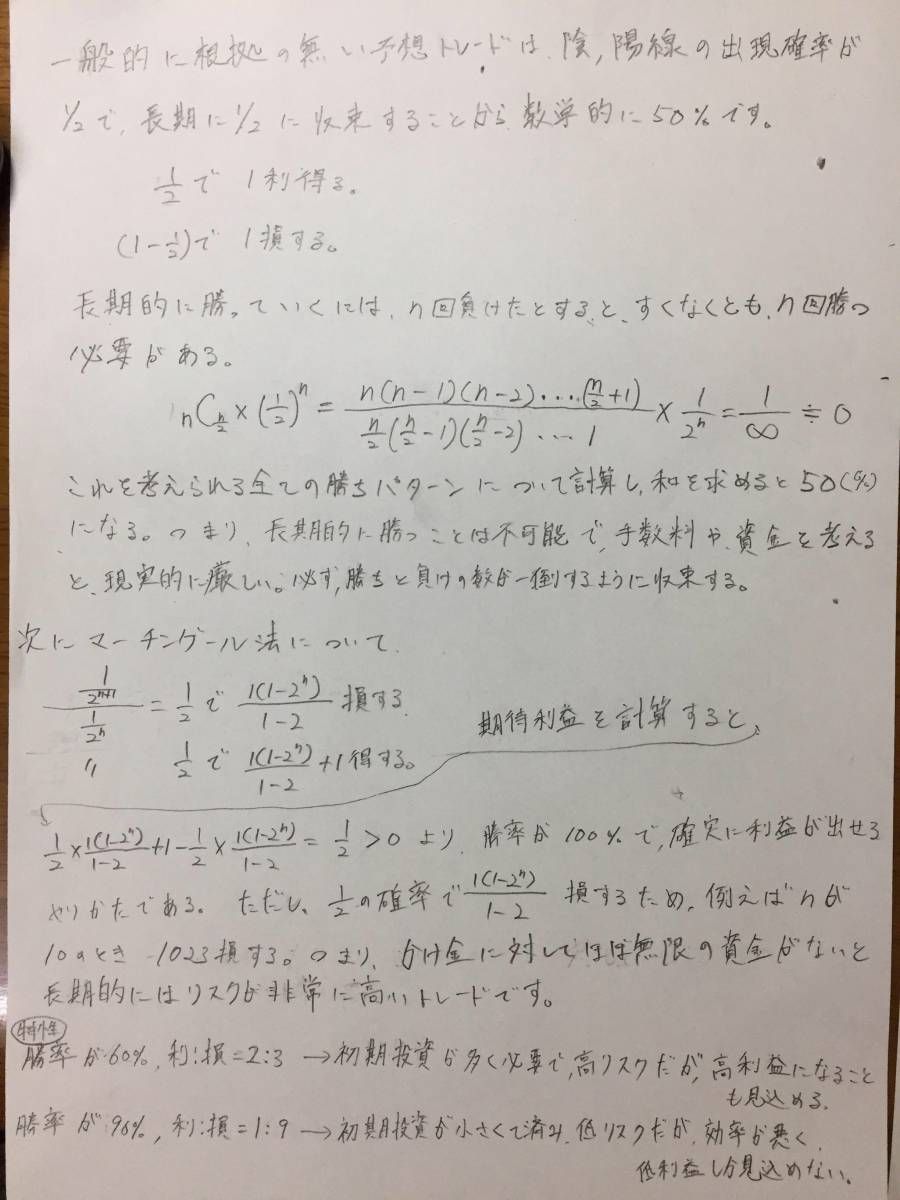 一般的に根拠の無い予想トレードは、陰,陽線の出現確率が
1/2で、長期に1/2に収束することから数学的に50%です。
1/2で 1利得る。
(1-1/2)で 1損する。
長期的に勝っていくには、n回負けたとすると、すくなくとも、n回勝つ
必要がある。
nCn/2×(1/2)^n = n(n-1)(n-2)・・・(n/2+1) / n/2(n/2-1)(n/2-2)・・・1 × 1/2^n = 1/∞ ≒ 0
これを考えられる全ての勝ちパターンについて計算し、和を求めると50(%)
になる。つまり、長期的に勝つことは不可能で、手数料や、資金を考える
と、現実的に厳しい。必ず,勝ちと負けの数が一倒するように収束する。
次にマーチンゲール法について
1/2^(n+1) / 1/2^n = 1/2 で 1(1-2^n)/1-2 損する.
〃 1/2 で 1(1-2^n)/1-2 +1得る。
期待利益を計算すると
1/2×1(1-2^n)/1-2+1-1/2×1(1-2^n)/1-2 = 1/2 > 0 より、勝率が100%で,確実に利益が出せる
やりかたである。ただし、1/2の確率で1(1-2^n)/1-2 損するため,例えばnが
10のとき -1023損する。つまり、かけ金に対してほぼ無限の資金がないと
長期的にはリスクが非常に高いトレードです。
勝率が60%,利:損=2:3 →初期投資が多く必要で,高リスクだが,高利益になること
も見込める.
勝率が90%,利:損=1:9 →初期投資が小さくて済み,低リスクだが,効率が悪く
低利益しか見込めない。